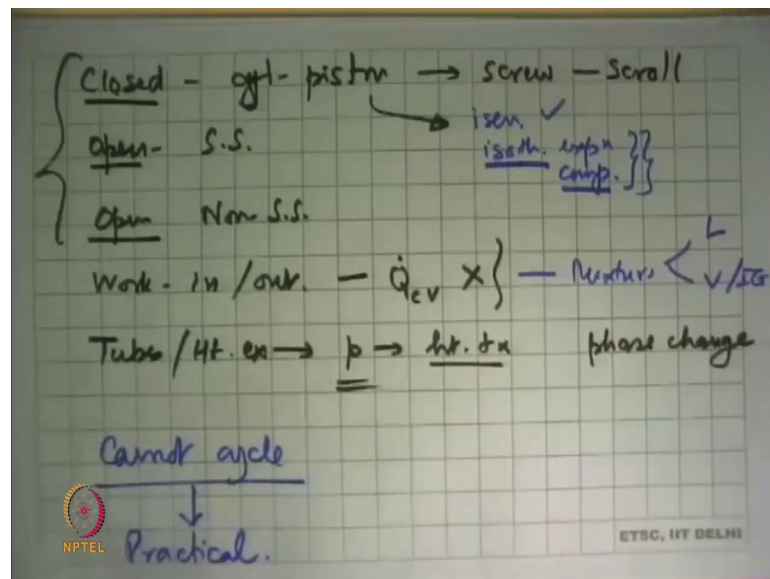 Closed - cyl - pistm → screw - scroll
isen. ✓
Open - S.S.
isoth. expn
comp. }}
Open Non S.S.
Work - in / out. - Q̇cv X } - Mixture < L
V/IG
Tubes / Ht. ex → p → ht. tx phase change
Carnot cycle
↓
Practical.
NPTEL
ETSC, IIT DELHI